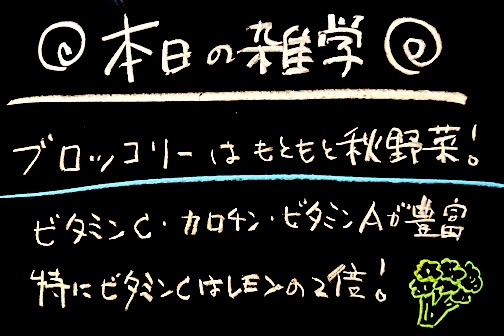 本日の雑学
ブロッコリーはもともと秋野菜!
ビタミンC・カロチン・ビタミンAが豊富
特にビタミンCはレモンの2倍!